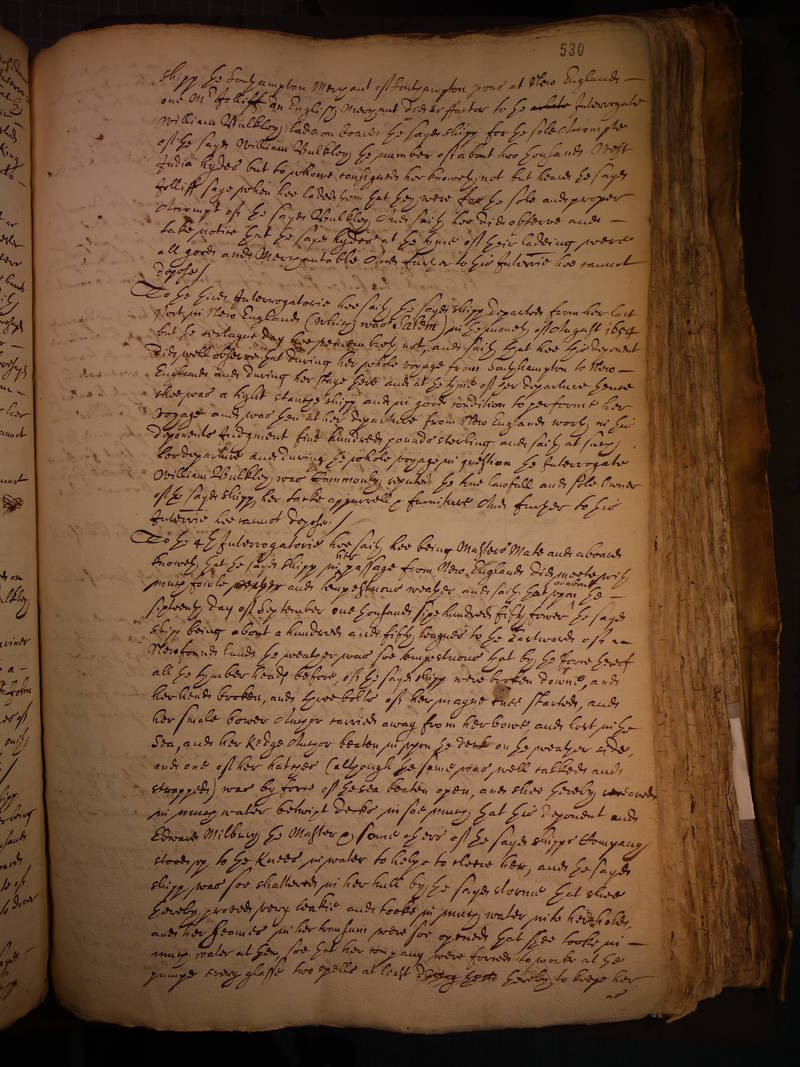 530
shipp the Southampton Merchant of Southampton was at New England
one Mr Jolliff an English Merchant did as ffactor to the Interrogate
William Bulkley lade on board the sayd shipp for the sole Accompte
of the sayd William Bulkley the number of about two thousand West
India hydes but to whome consigned hee knoweth not but heard the sayd
Jolliff saye when hee laded them that they were for the sole and proper
Accompt of the sayd Bulkley And saith hee did observe and
take notice that the sayd hydes at the tyme of their ladeing were
all good and Merchantable And further to this Interrie hee cannot
depose /
To the third Interrogatorie hee saith the sayd shipp departed from her last
Porte in New England (which was Salem) in the moneth of August 1654
but the certayne day hee remembreth not, and saith that hee this deponent
did well observe that during her whole voyage from Southampton to New
England and during her staye there and at the tyme of her departure thence
shee was a tight staunch shipp and in good condition to performe her
voyage and was then at her departure from New England worth in his
deponents Judgment five hundred pounds sterling and saith at such
her departure and during the whole voyage in question the Interrogate
William Bulkley was Commonly reputed the true lawfull and sole Owner
of the sayd shipp her tackle apparrell & furniture And further to this
Interrie hee cannot depose. /
To the 4th Interrogatorie hee saith hee being Masters Mate and aboard
knoweth that the sayd shipp in her passage from New England did meete with
much fowle weather and tempestuous weather and saith that upon or about the
sixteenth day of September one thousand sixe hundred fifty fower the sayd
shipp being about a hundred and fifty leagues to the Eastward of
Newfound land the weather was soe tempestuous that by the force thereof
all the tymber heads before, of the sayd shipp were broken downe, and
her heads broken, and three bolts of her mayne knee started, and
her smale bower Anchor carried away from her bowe, and lost in the
Sea, and her Kedge Anchor beaten in uppon the deck on the weather side,
and one of her hatches (although the same was well calked and
strapped) was by force of the sea beaten open, and shee thereby receaved
in much water betwixt decks in soe much that this deponent and
Edward Milbury the Master & some others of the sayd shipps Company
stood up to the Knees in water to helpe to cleere her, and the sayd
shipp was soe shattered in her hull by the sayd storme that shee
thereby proved very leakie and tooke in much water into her hold,
and her seames in her transum were soe opened that shee tooke in
much water at them, soe that her company were forced to worke at the
pumpe every glasse two spells at least thereby to keepe her
as